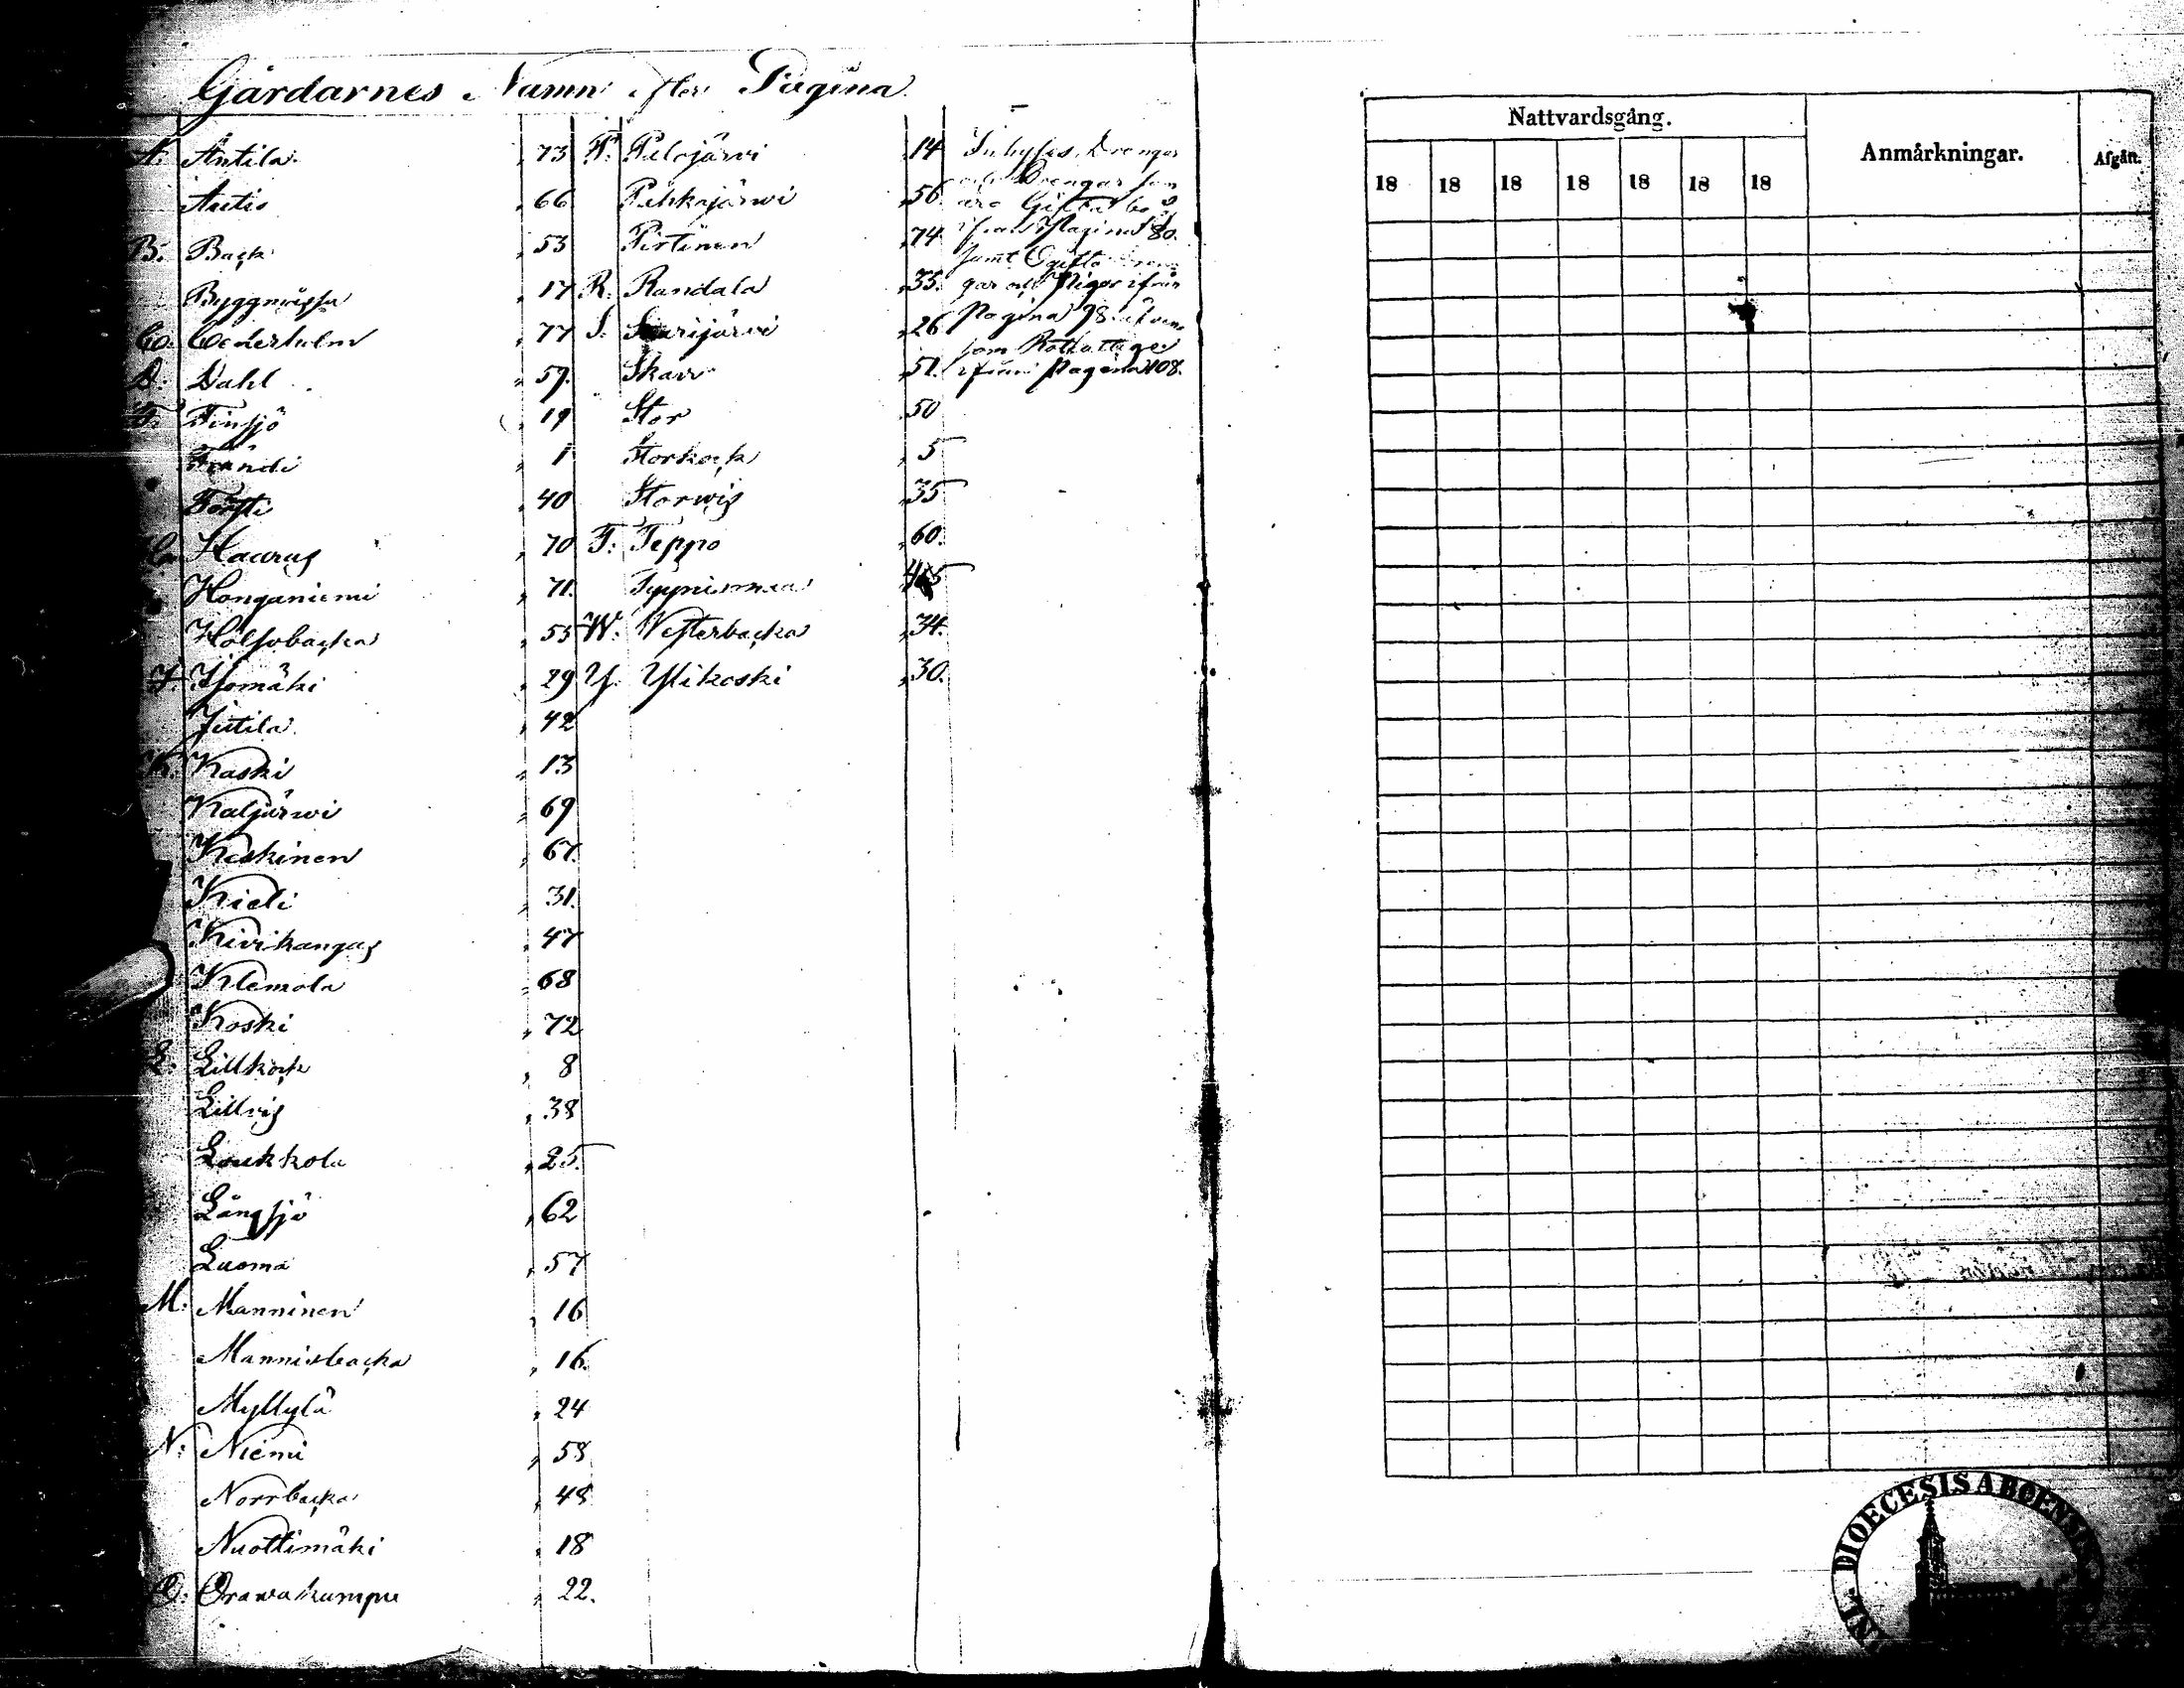 Gårdarnes Namn efter Pagina
A. Antila 73
Autio 66
B. Back 53
Byggmästar 17
C. Cederholm 77
D. Dahl 59.
F. Finsjö 19
Frändi 1
Försti 40
H. Haurus 70
Honganiemi 71.
Hölsobacka 55
I. Isomäki 29
Jutila 42
K. Kaski 13
Kaljärwi 69
Keskinen 67.
Kieli 31.
Kivikangas 47
Klemola 68
Koski 72
L. Lillkock 8
Lillvis 38
Loukkola 25.
Långsjö 62
Luoma 57
M. Manninen 16
Mannisbacka 16.
Myllylä 24
N. Niemi 58
Norrbacka 48
Nuottimäki 18
O. Orawakumpu 22.
P. Palojärvi 14
Pehkajärwi 56
Pirtinen 74
R. Randala 35.
S. Saarijärvi 26
Skarr 51.
Stor 50
Storkock 5
Storwis 35
T. Teppo 60.
Typpismaa
W. Westerbacka 34.
Y. Ylikoski 30.
Inhyses Drengar
och Drengar som
äro Gifta
ifrån Pagina 80.
samt Ogifta Dren
gar och Pigor ifrån
Pagina 98 äfven
som
ifrån Pagina 108.
Nattvardsgång.
Anmårkningar.
Afgått.
18 18 18 18 18 18 18
DIOECESIS ABOENSIS